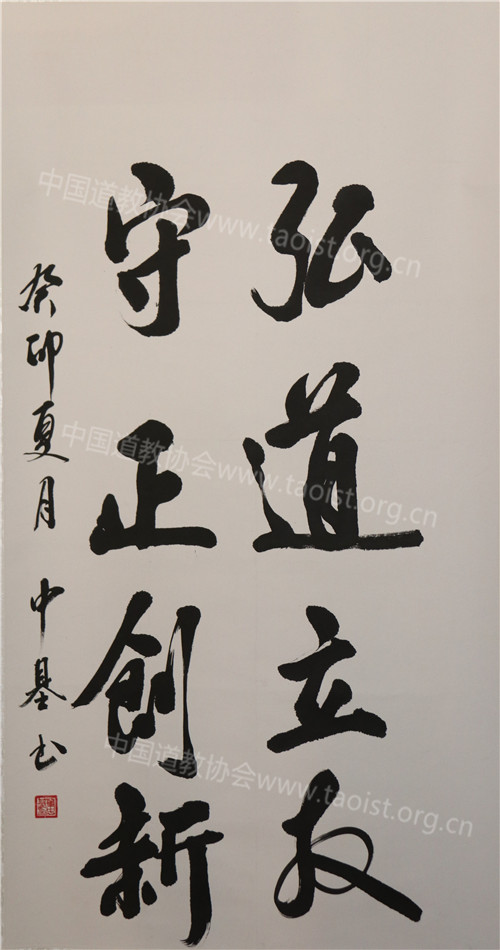 弘道立本
守正創新
癸卯夏月 中基书
中国道教协会www.taoist.org.cn
中国道教协会www.taoist.org.cn
中国道教协会www.taoist.org.cn